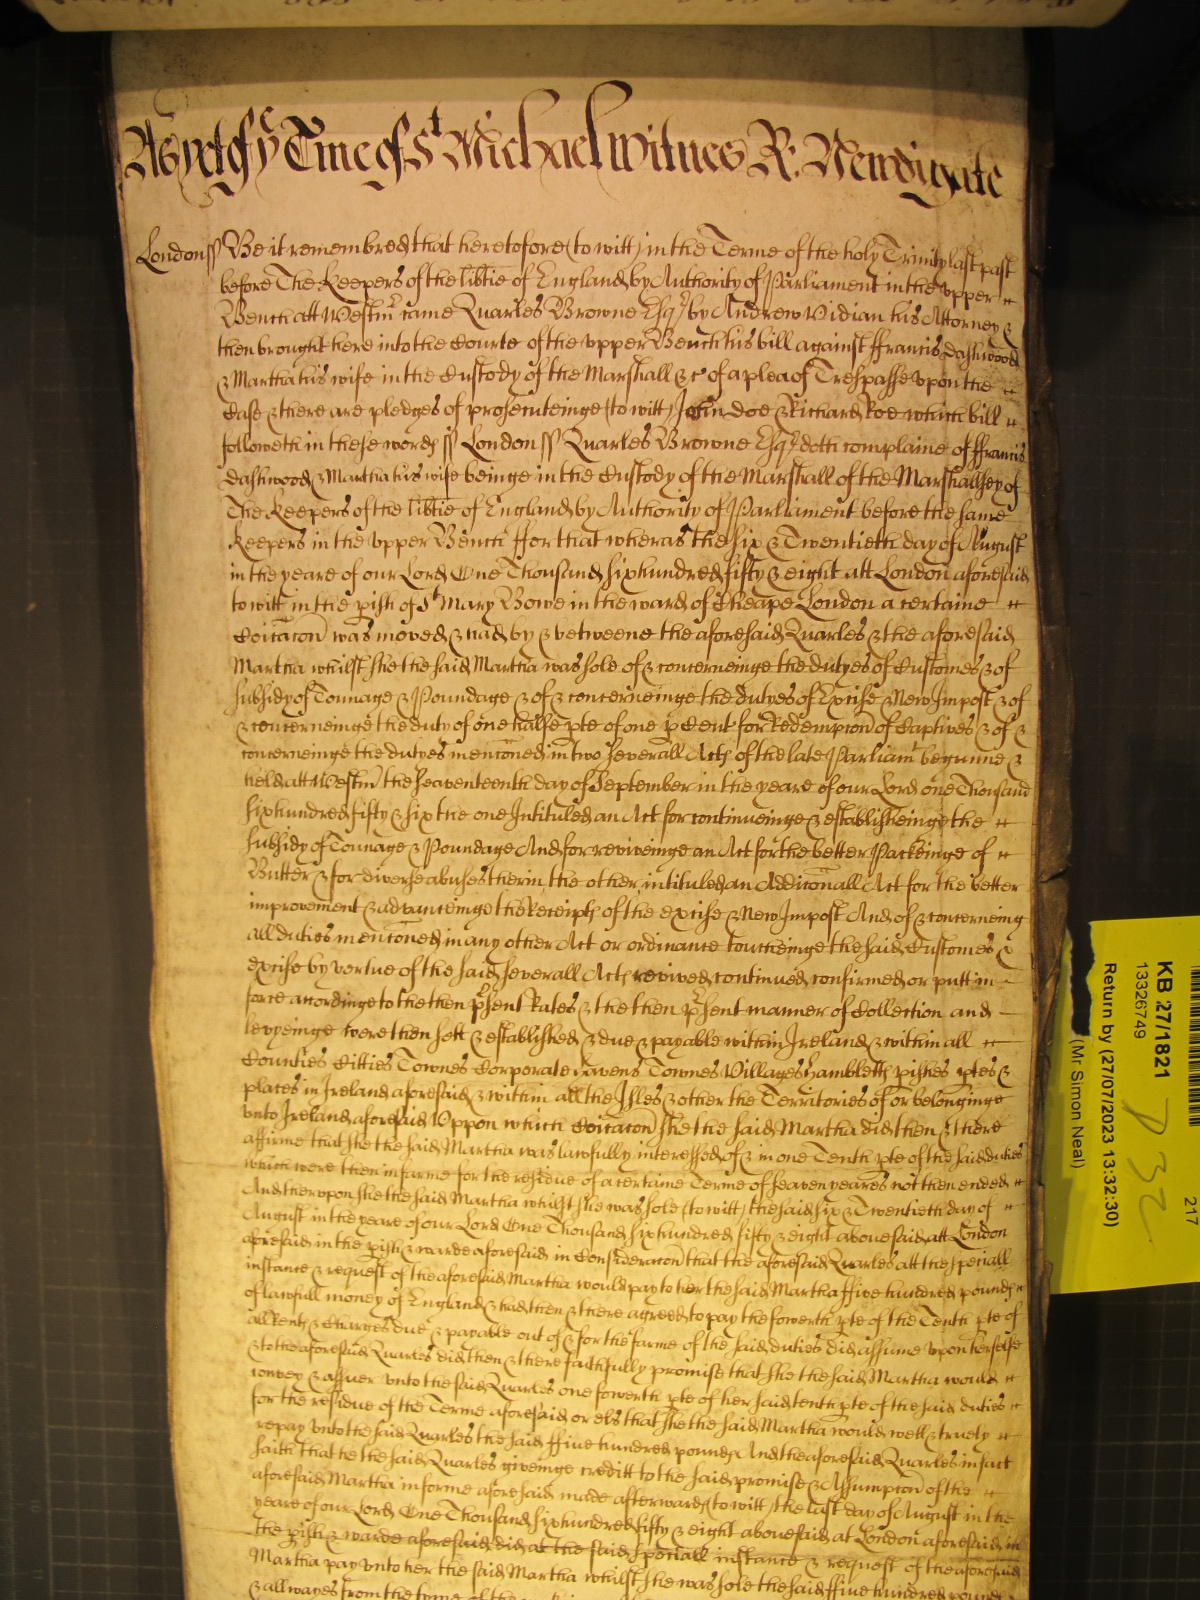 As yet of yᵉ Time of Sᵗ Michael witnes R: Newdigate
London ss Be it remembred that heretofore (to witt) in the Terme of the holy Trinity last past
before The Keepers of the libtie of England by Authority of Parliament in the upper
Bench att Westmʳ came Quarles Browne Esqʳ by Andrew Vidian his Attorney &
then brought here into the Courte of the upper Bench his bill against ffrancis Dashwood
& Martha his wife in the Custody of the Marshall &c of a plea of Trespasse upon the
Case & there are pledges of prosecuteinge (to witt) John Doe & Richard Roe which bill
followeth in these words ss London ss Quarles Browne Esqʳ doth complaine of ffrancis
Dashwood & Martha his wife beinge in the Custody of the Marshall of the Marshallsey of
The Keepers of the libtie of England by Authority of Parliament before the same
Keepers in the upper Bench ffor that wheras the six & Twentieth day of August
in the yeare of our Lord One Thousand six hundred fifty & eight att London aforesaid
to witt in the pish of Sᵗ Mary Bowe in the ward of Cheape London a certaine
Coicacon was moved & had by & betweene the aforesaid Quarles & the aforesaid
Martha whilst she the said Martha was sole of & concerneinge the dutyes of Customes & of
subsidy of Tonnage & Poundage & of & concerneinge the dutyes of Excise & New Impost & of
& concerneinge the duty of one halfe pte of one p Cent for Redempcon of Captives & of &
concerneinge the dutyes menconed in two severall Acts of the late Parliamᵗ begunne &
held att Westmʳ the seaventeenth day of September in the yeare of our Lord one Thousand
six hundred fifty & six the one Intituled an Act for continueinge & establisheinge the
subsidy of Tonnage & Poundage And for reviveinge an Act for the better Packeinge of
Butter & for diverse abuses therin the other intituled an Addiconall Act for the better
improvement & advanceinge the Receipts of the excise & New Impost And of & concerneing
all duties menconed in any other Act or ordinance toucheinge the said Customes &
excise by vertue of the said severall Acts revived continued confirmed or putt in
force accordinge to the then psent Rates & the then psent manner of Collection and
levyeinge were then sett & established & due & payable within Ireland & within all
Counties Citties Townes Corporate Havens Townes Villages Hambletts pishes ptes &
places in Ireland aforesaid & within all the Isles & other the Territories of or belonginge
unto Ireland aforesaid Uppon which Coicacon she the said Martha did then & there
affirme that she the said Martha was lawfully interessed of & in one Tenth pte of the said duties
which were then in farme for the residue of a certaine Terme of seaven yeares not then ended
And therupon she the said Martha whilst she was sole (to witt) the said six & Twentieth day of
August in the yeare of our Lord One Thousand six hundred fifty & eight abovesaid att London
aforesaid in the pish & warde aforesaid in Consideracon that the aforesaid Quarles att the speciall
instance & request of the aforesaid Martha would pay to her the said Martha ffive hundred pounds
of lawfull money of England & had then & there agreed to pay the fowerth pte of the Tenth pte of
all Rents & Charges due & payable out of & for the farme of the said duties did assume upon herselfe
& to the aforesaid Quarles did then & there faithfully promise that she the said Martha would
convey & assuer unto the said Quarles one fowerth pte of her said tenth pte of the said duties
for the residue of the Terme aforesaid or els that she the said Martha would well & truely
repay unto the said Quarles the said ffive hundred pounds And the aforesaid Quarles in fact
saith that he the said Quarles giveinge creditt to the said promise & Assumpcon of the
aforesaid Martha in forme aforesaid made afterwards (to witt) the last day of August in the
yeare of our Lord One Thousand six hundred fifty & eight abovesaid at London aforesaid in
the pish & warde aforesaid did at the said speciall instance & request of the aforesaid
Martha pay unto her the said Martha whilst she was sole the said ffive hundred pounds
& all wayes from the tyme of the
KB 27/1821
13326749
Return by (27/07/2023 13:32:30)
(Mr Simon Neal)
217